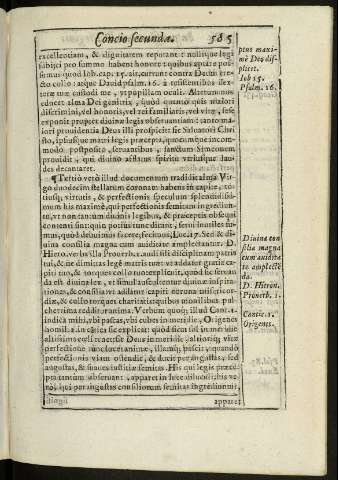 Concio secundæ. 585
excellentiam, & dignitatem reputant: nullique legi
subijci pro summo habent honore: quibus aptare pos-
semus quod Iob. cap. 15. ait, currunt contra Deum erec-
to collo: atque David psalm. 16. à resistentibus dex-
teræ tuæ custodi me, ut pupillam oculi. Alterum nos
edocet alma Dei genitrix, quòd quanto quis maiori
discrimini, vel honoris, vel rei familiaris, vel vitæ, sese
exponit propter divinæ legis observantiam: tanto ma-
iori providentia Deus illi prospicit: sic Salvatori Chri-
sto, ipsiusque matri legis præcepta, quocumque incom-
modo postposito, servantibus, sanctum Simeonem
providit, qui divino afflatus spiritu utriusque lau-
des decantaret.
¶ Tertio verò illud documentum tradidit alma Vir-
go duodecim stellarum coronam habens in capite, to-
tiusq; virtutis, & perfectionis speculum splendidissi-
mum his maximè, qui perfectionis semitam ingrediun-
tur, ut non tantum divinis legibus, & præceptis obsequi
contenti sint: qui potius tunc dicant, servi inutiles su-
mus, quod debuimus facere, fecimus, Luc. 17. Sed & di-
vina consilia magna cum aviditate amplectantur. D.
Hiero. verba illa Proverb. 1. audi fili disciplinam patris
tui, & ne dimittas legem matris tuæ: ut addatur gratia capi-
ti tuo, & torques collo tuo: explicuit, quod sic servan-
da est divina lex, ut simul adsciscantur divinæ inspira-
tiones, & consilia: ut addant capiti coronæ mirificè or-
datæ, & collo torques charitatis: quibus monilibus pul-
cherrima redditur anima. Verbum quoq; illud Cant. 1.
indica mihi, ubi pascas, ubi cubes in meridie, Origenes
homil. 1. in cantica sic explicat: quòd sicut sol in meridie
altissimo cœli  Deus in meridie, altioriq; vitæ
perfectione animæ, illamq; pascit: quando
perfectionis viam ostendit, & ducit per angustas, sed
augustas, & suaves iustitiæ semitas. His qui legis præce-
pta tantum observant, apparet in luce diluculi: his ve-
rò, qui per angustas consiliorum semitas ingrediuntur,
apparet
ptus maxi-
mè Deo dis-
plicet.
Iob 15.
Psalm. 16.
Divina con
silia magna
cum avidita
te amplectē
da.
D. Hieron.
Proverb. 1.
Cantic. 1.
Origenes.